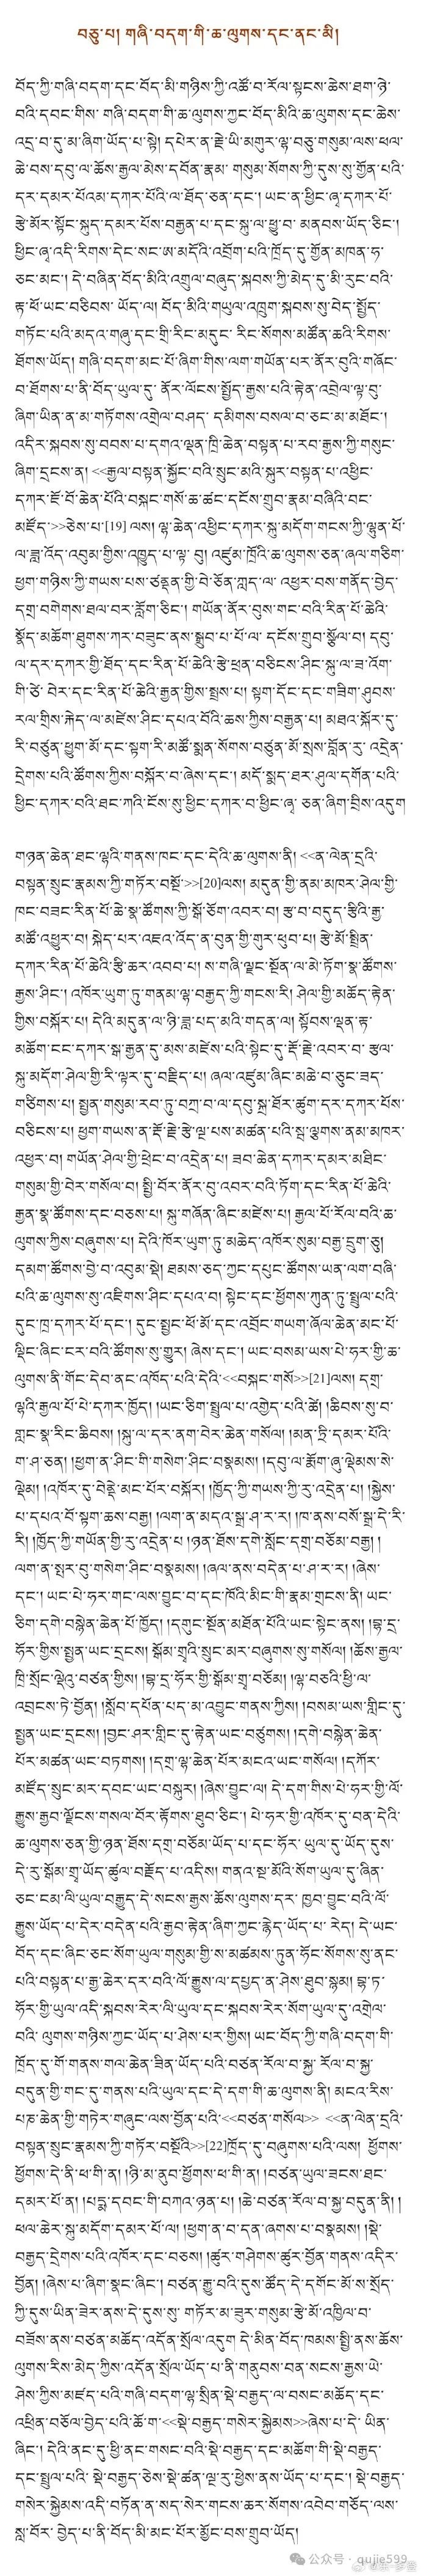 བཅུ་པ། གཞི་བདག་གི་ཆ་ལུགས་དང་ནང་མི།
བོད་ཀྱི་གཞི་བདག་དང་བོད་མི་གཉིས་ཀྱི་འཚོ་བ་རོལ་སྟངས་ཆེས་ཐག་ཉེ་
བའི་དབང་གིས་ གཞི་བདག་གི་ཆ་ལུགས་ཀྱང་བོད་མིའི་ཆ་ལུགས་དང་ཆེས་
འདྲ་བ་དུ་མ་ཞིག་ཡོད་པ་སྟེ། དཔེར་ན་རྗེ་ཡི་མགུར་ལྷ་བཅུ་གསུམ་ལས་ཕལ་
ཆེ་བས་དབུ་ལ་ཆོས་རྒྱལ་མེས་དབོན་རྣམ་ གསུམ་སོགས་ཀྱི་དུས་སུ་གྱོན་པའི་
དར་དམར་པོའམ་དཀར་པོའི་ལ་ཐོད་ཅན་དང་། ཡང་ན་ཕྱིང་ཞྭ་དཀར་པོ་
རྩེ་མོར་སྟོང་སྐུད་དམར་པོས་བརྒྱན་པ་དང་སྐུ་ལ་ཕྱུ་བ་ མནབས་ཡོད་ཅིང་།
ཕྱིང་ཞྭ་འདི་རིགས་དེང་སང་ཨ་མདོའི་འབྲོག་པའི་ཁྲོད་དུ་གྱོན་མཁན་ཧ་
ཅང་མང་། དེ་བཞིན་བོད་མིའི་འགྲུལ་བཞུད་སྐབས་ཀྱི་མེད་དུ་མི་རུང་བའི་
རྟ་ཕོ་ཡང་བཅིབས་ ཡོད་ལ། བོད་མིའི་གཡུལ་འཁྲུག་སྐབས་སུ་བེད་སྤྱོད་
གཏོང་པའི་མདའ་གཞུ་དང་གྲི་རིང་མདུང་ རིང་སོགས་མཚོན་ཆའི་རིགས་
ཐོགས་ཡོད། གཞི་བདག་མང་པོ་ཞིག་གིས་ལག་གཡོན་པར་ནོར་བུའི་གཞོང་
བ་ཐོགས་པ་ནི་བོད་ཡུལ་དུ་ ནོར་ལོངས་སྤྱོད་རྒྱས་པའི་རྟེན་འབྲེལ་ལྟ་བུ་
ཞིག་ཡིན་ན་མ་གཏོགས་འགྲེལ་བཤད་ དམིགས་བསལ་བ་ཅང་མ་མཐོང་།
འདིར་སྐབས་སུ་བབས་པ་དགའ་ལྡན་ཁྲི་ཆེན་བསྟན་པ་རབ་རྒྱས་ཀྱི་གསུང་
ཞིག་དྲངས་ན། <<རྒྱལ་བསྟན་སྐྱོང་བའི་སྲུང་མའི་སྐུར་བསྟན་པ་འཕྱིང་
དཀར་ཇོ་བོ་ཆེན་པོའི་བསྐང་གསོ་ཆ་ཚང་དངོས་གྲུབ་རྣམ་བཞིའི་བང་
མཛོད་>>ཅེས་པ་[19] ལས། ལྷ་ཆེན་འཕྱིང་དཀར་སྐུ་མདོག་གངས་ཀྱི་ལྷུན་པོ་
ལ་ཟླ་འོད་འབུམ་གྱིས་འཁྱུད་པ་ལྟ་ བུ། འཛུམ་ཁྲོའི་ཆ་ལུགས་ཅན་ཞལ་གཅིག་
ཕྱག་གཉིས་ཀྱི་གཡས་པས་ཙནྡན་གྱི་བེ་ཅོན་ཀླད་ལ་ འཕྱར་བས་གནོད་བྱེད་
དགྲ་བགེགས་ཐལ་བར་རློག་ཅིང་། གཡོན་ནོར་བུས་གང་བའི་རིན་པོ་ཆེའི་
སྣོད་མཆོག་ཐུགས་ཀར་བཟུང་ནས་སྒྲུབ་པ་པོ་ལ་ དངོས་གྲུབ་སྩོལ་བ། དབུ་
ལ་དར་དཀར་གྱི་ཐོད་དང་རིན་པོ་ཆེའི་རྩེ་ཕྲན་བཅིངས་ཤིང་སྐུ་ལ་ཟ་འོག་
གི་ཙེ་ བེར་དང་རིན་པོ་ཆེའི་རྒྱན་གྱིས་སྤྲས་པ། སྟག་དོང་དང་གཟིག་ཤུབས་
རལ་གྲིས་རྐེད་ལ་མཛེས་ཤིང་དཔའ་བོའི་ཆས་ཀྱིས་བརྒྱན་པ། མཐའ་སྐོར་དུ་
རི་བཙུན་ཕྱུག་མོ་དང་སྟག་རི་མཚོ་སྨན་སོགས་བཙུན་མོ་སྲས་བློན་རུ་ འདྲེན་
དྲེགས་པའི་ཚོགས་ཀྱིས་བསྐོར་བ་ཞེས་དང་། མདོ་སྨད་ཐར་ཤུལ་དགོན་པའི་
ཕྱིང་དཀར་བའི་ཐང་ཀའི་ངོས་སུ་ཕྱིང་དཀར་བ་ཕྱིང་ཞྭ་ ཅན་ཞིག་བྲིས་འདུག
གཉན་ཆེན་ཐང་ལྷའི་གནས་ཁང་དང་དེའི་ཆ་ལུགས་ནི། <<ན་ལེན་དྲའི་
བསྟན་སྲུང་རྣམས་ཀྱི་གཏོར་བསྔོ་>>[20]ལས། མདུན་གྱི་ནམ་མཁར་ཤེལ་གྱི་
ཁང་བཟང་རིན་པོ་ཆེ་སྣ་ཚོགས་ཀྱི་སྒོ་ཅོག་འབར་བ། རྩ་བ་བདུད་རྩིའི་རྒྱ་
མཚོ་འཁྱུར་བ། སྐེད་པར་འཇའ་འོད་ན་བུན་གྱི་གུར་ཕུབ་པ། རྩེ་མོ་སྤྲིན་
དཀར་རིན་པོ་ཆེའི་རྩི་ཆར་འབབ་པ། ས་གཞི་ལྗང་སྔོན་ལ་མེ་ཏོག་སྣ་ཚོགས་
རྒྱས་ཤིང་། འཁོར་ཡུག་ཏུ་གནམ་ལྷ་བརྒྱད་ཀྱི་གངས་རི། ཤེལ་གྱི་མཆོད་རྟེན་
གྱིས་བསྐོར་པ། དེའི་མདུན་ལ་ཉི་ཟླ་པད་མའི་གདན་ལ། སྟོབས་ལྡན་རྟ་
མཆོག་ངང་དཀར་སྒ་རྒྱན་དུ་མས་མཛེས་པའི་སྟེང་དུ་རྡོ་རྗེ་འབར་བ་ རྩལ་
སྐུ་མདོག་ཤེལ་གྱི་རི་ལྟར་དུ་བརྗིད་པ། ཞལ་འཛུམ་ཞིང་མཆེ་བ་ཅུང་ཟད་
གཙིགས་པ། སྤྱན་གསུམ་རབ་ཏུ་བཀྲ་བ་ལ་དབུ་སྐྲ་ཐོར་ཚུག་དར་དཀར་པོས་
བཅིངས་པ། ཕྱག་གཡས་ན་རྡོ་རྗེ་རྩེ་ལྔ་པས་མཚན་པའི་སྦ་ལྕགས་ནམ་མཁར་
འཕྱར་བ། གཡོན་ཤེལ་གྱི་ཕྲེང་བ་འདྲེན་པ། ཟབ་ཆེན་དཀར་དམར་མཐིང་
གསུམ་གྱི་བེར་གསོལ་བ། སྤྱི་བོར་ནོར་བུ་འབར་བའི་ཏོག་དང་རིན་པོ་ཆེའི་
རྒྱན་སྣ་ཚོགས་དང་བཅས་པ། སྐུ་གཞོན་ཞིང་མཛེས་པ། རྒྱལ་པོ་རོལ་བའི་ཆ་
ལུགས་ཀྱིས་བཞུགས་པ། དེའི་ཁོར་ཡུག་ཏུ་མཆེད་འཁོར་སུམ་བརྒྱ་དྲུག་ཅུ།
དམག་ཚོགས་བྱེ་བ་འབུམ་སྡེ། ཐམས་ཅད་ཀྱང་དཔུང་ཚོགས་ཡན་ལག་བཞི་
པའི་ཆ་ལུགས་སུ་འཇིགས་ཤིང་དཔའ་བ། སྟེང་དང་ཕྱོགས་ཀུན་ཏུ་སྤྲུལ་པའི་
དུང་ཁྲ་དཀར་པོ་དང་། དུང་སྤྱང་ཕོ་མོ་དང་འབྲོང་གཡག་ཞོལ་ཆེན་མང་པོ་
ལྡིང་ཞིང་ངར་བའི་ཚོགས་སུ་གྱུར། ཞེས་དང་། ཡང་བསམ་ཡས་པེ་ཧར་གྱི་ཆ་
ལུགས་ནི་གོང་དེབ་ནང་འཁོད་པའི་དེའི་<<བསྐང་གསོ>>[21]ལས། དགྲ་
ལྷའི་རྒྱལ་པོ་པེ་དཀར་ཁྱོད། །ཡང་ཅིག་སྤྲུལ་པ་འགྱེད་པའི་ཚེ། །ཆིབས་སུ་བ་
གླང་སྣ་རིང་ཆིབས། །སྐུ་ལ་དར་ནག་བེར་ཆེན་གསོལ། །མན་ཏྲི་དམར་པོའི་
ག་ཤ་ཅན། །ཕྱག་ན་ཤིང་གི་གསེག་ཤིང་བསྣམས། །དབུ་ལ་རྨོག་ཞུ་ལྡེམས་སེ་
ལྡེམ། །འཁོར་དུ་བནྡེ་མང་པོར་བསྐོར། །ཁྱོད་ཀྱི་གཡས་ཀྱི་རུ་འདྲེན་པ། །སྐྱེས་
པ་དཔའ་བོ་སྟག་ཆས་བརྒྱ། །ལག་ན་མདའ་སྒྲ་ཤ་ར་ར། །ཁ་ནས་བསོ་སྒྲ་དི་རི་
རི། །ཁྱོད་ཀྱི་གཡོན་གྱི་རུ་འདྲེན་པ། །ཉན་ཐོས་དགེ་སློང་དགྲ་བཅོམ་བརྒྱ། །
ལག་ན་སྤར་བུ་གསེག་ཤིང་བསྣམས། །ཞལ་ནས་བདེན་པ་ཤ་ར་ར། །ཞེས་
དང་། ཡང་པེ་ཧར་གང་ལས་བྱུང་བ་དང་ཁོའི་མིང་གི་རྣམ་གྲངས་ནི། ཡང་
ཅིག་དགེ་བསྙེན་ཆེན་པོ་ཁྱོད། །དགུང་སྔོན་མཐོན་པོའི་ཡང་སྟེང་ནས། །བྷ་ཊ་
ཧོར་གྱིས་སྤྱན་ཡང་དྲངས། སྒོམ་གྲྭའི་སྲུང་མར་བཞུགས་སུ་གསོལ། །ཆོས་རྒྱལ་
ཁྲི་སྲོང་ལྡེའུ་བཙན་གྱིས། །བྷ་ཊ་ཧོར་གྱི་སྒོམ་གྲྭ་བཅོམ། །ལྷ་བཅའི་ཕྱི་ལ་
འབྲངས་ཏེ་བྱོན། །སློབ་དཔོན་པད་མ་འབྱུང་གནས་ཀྱིས། །བསམ་ཡས་གླིང་དུ་
སྤྱན་ཡང་དྲངས། །བྱང་ཤར་གླིང་དུ་རྟེན་ཡང་བཙུགས། །དགེ་བསྙེན་ཆེན་
པོར་མཚན་ཡང་བཏགས། །དགྲ་ལྷ་ཆེན་པོར་མངའ་ཡང་གསོལ། །དཀོར་
མཛོད་སྲུང་མར་དབང་ཡང་བསྐུར། །ཞེས་བྱུང་ལ། དེ་དག་གིས་པེ་ཧར་གྱི་ལོ་
རྒྱུས་རྒྱབ་ལྗོངས་གསལ་བོར་རྟོགས་ཐུབ་ཅིང་། པེ་ཧར་གྱི་འཁོར་དུ་བན་དེའི་
ཆ་ལུགས་ཅན་གྱི་ཉན་ཐོས་དགྲ་བཅོམ་ཡོད་པ་དང་ཧོར་ ཡུལ་དུ་ཡོད་དུས་
དེ་རུ་སྒོམ་གྲྭ་ཡོད་ཚུལ་བརྗོད་པ་འདིས། གནའ་སྔ་མོའི་སོག་ཡུལ་དུ་ཞིན་
ཅང་ངམ་ལི་ཡུལ་བརྒྱུད་དེ་སངས་རྒྱས་ཆོས་ལུགས་དར་ ཁྱབ་བྱུང་བའི་ལོ་
རྒྱུས་ཡོད་པ་དེར་བདེན་པའི་རྒྱབ་རྟེན་ཞིག་ཀྱང་རྙེད་ཡོད་པ་ རེད། དེ་ཡང་
བོད་དང་ཞིང་ཅང་སོག་ཡུལ་གསུམ་གྱི་ས་མཚམས་ཏུན་ཧོང་སོགས་སུ་ནང་
པའི་བསྟན་པ་རྒྱ་ཆེར་དར་བའི་ལོ་རྒྱུས་ལ་དཔྱད་ན་ཤེས་ཐུབ་སྙམ། བྷ་ཏ་
ཧོར་གྱི་ཡུལ་འདི་སྐབས་རེར་ལི་ཡུལ་དང་སྐབས་རེར་སོག་ཡུལ་དུ་འགྲེལ་
བའི་ ལུགས་གཉིས་ཀྱང་ཡོད་པ་ཤེས་པར་གྱིས། ཡང་བོད་ཀྱི་གཞི་བདག་གི་
ཁྲོད་དུ་གོ་གནས་གལ་ཆེན་ཟིན་ཡོད་པའི་བཙན་རོལ་བ་སྐྱ་ རོལ་བ་སྐྱ་
བདུན་གྱི་གང་དུ་གནས་པའི་ཡུལ་དང་དེ་དག་གི་ཆ་ལུགས་ནི། མངའ་རིས་
པཎ་ཆེན་གྱི་གཏེར་གཞུང་ལས་བྱོན་པའི་<<བཙན་གསོལ>> <<ན་ལེན་དྲའི་
བསྟན་སྲུང་རྣམས་ཀྱི་གཏོར་བསྔོའི>>[22]ཁྲོད་དུ་བཞུགས་པའི་ལས། ཕྱོགས་
ཕྱོགས་དེ་ནི་ཕ་གི་ན། །ཉི་མ་ནུབ་ཕྱོགས་ཕ་གི་ན། །བཙན་ཡུལ་ཟངས་ཐང་
དམར་པོ་ན། །པདྨ་དབང་གི་བཀའ་ཉན་པ། །ཆེ་བཙན་རོལ་བ་སྐྱ་བདུན་ནི། །
ཕལ་ཆེར་སྐུ་མདོག་དམར་པོ་ལ། །ཕྱག་ན་བ་དན་ཞགས་པ་བསྣམས། །སྡེ་
བརྒྱད་དྲེགས་པའི་འཁོར་དང་བཅས། །ཚུར་གཤེགས་ཚུར་བྱོན་གནས་འདིར་
བྱོན། །ཞེས་པ་ཞིག་སྣང་ཞིང་། བཙན་རྒྱུ་བའི་དུས་ཚོད་དེ་དགོང་མོ་ས་སྲོད་
ཀྱི་དུས་ཡིན་ཟེར་ནས་དེ་དུས་སུ་ གཏོར་མ་ཟུར་གསུམ་རྩེ་མོ་འཁྱིལ་བ་
བཟོས་ནས་བཙན་མཆོད་འདོན་སྲོལ་འདུག དེ་མིན་བོད་ཁམས་སྤྱི་ནས་ཆོས་
ལུགས་རིས་མེད་ཀྱིས་འདོན་སྲོལ་ཡོད་པ་ནི་གནུབས་བན་སངས་རྒྱས་ཡེ་
ཤེས་ཀྱིས་མཛད་པའི་གཞི་བདག་ལྷ་སྲིན་སྡེ་བརྒྱད་ལ་བསང་མཆོད་དང་
འཕྲིན་བཅོལ་བྱེད་པའི་ཆོ་ག་<<སྡེ་བརྒྱད་གསེར་སྐྱེམས>>ཞེས་པ་དེ་ ཡིན་
ཞིང་། དེའི་ནང་དུ་ཕྱི་ནང་གསང་བའི་སྡེ་བརྒྱད་དང་མཆོག་གི་སྡེ་བརྒྱད་
དང་སྤྲུལ་པའི་ སྡེ་བརྒྱད་ཅེས་སྡེ་ཚན་ལྔ་རུ་ཕྱེས་ནས་ཡོད་པ་དང་། སྡེ་བརྒྱད་
གསེར་སྐྱེམས་འདི་བཏོན་ན་སད་སེར་གངས་ཆར་སོགས་འབེབ་གཅོད་ལས་
སླ་བོར་ བྱེད་པ་ནི་བོད་མི་མང་པོར་མྱོང་བས་གྲུབ་ཡོད།
公众号 · qujie599